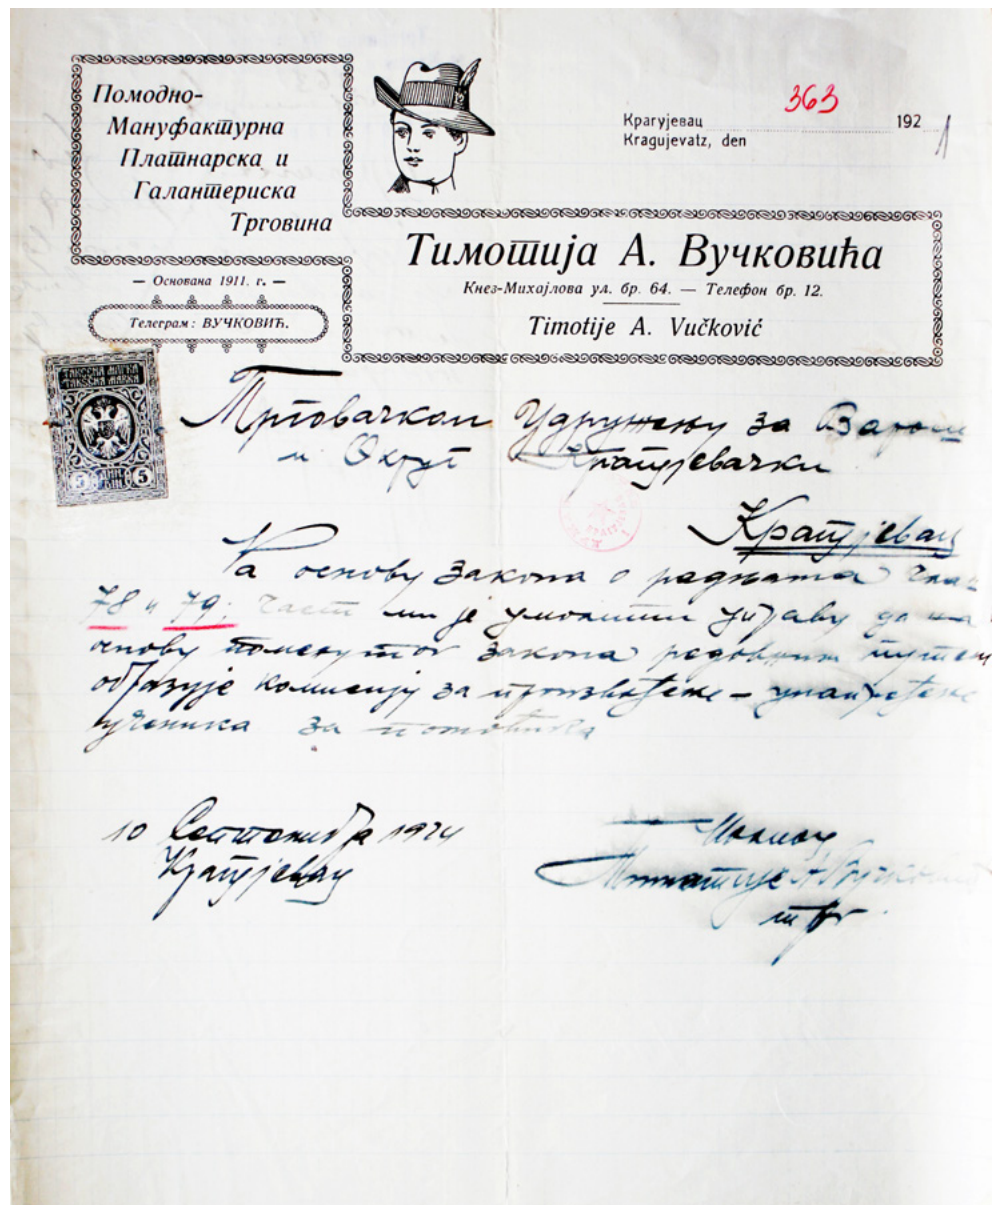 Помодно-
Мануфактурна
Платнарска и
Галантериска
Трговина
— Основана 1911. г. —
Телеграм: ВУЧКОВИЋ.
363
Крагујевац 192 1
Kragujevatz, den
Тимотија А. Вучковића
Кнез-Михајлова ул. бр. 64. — Телефон бр. 12.
Timotije A. Vučković
ТАКСЕНА МАРКА
TAKSENA MARKA
5 ДИН. 5
DIN.
Трговачком Удружењу за Варош
и Округ Крагујевачки
Крагујевац
На основу закона о радњама члан
78 и 79. част ми је умолити управу да на
основу поменутог закона редовним путем
образује комисију за произвођење – унапређење
ученика за помоћника
10 Септембра 1921
Крагујевац
Тимотије А Вучковић
трг